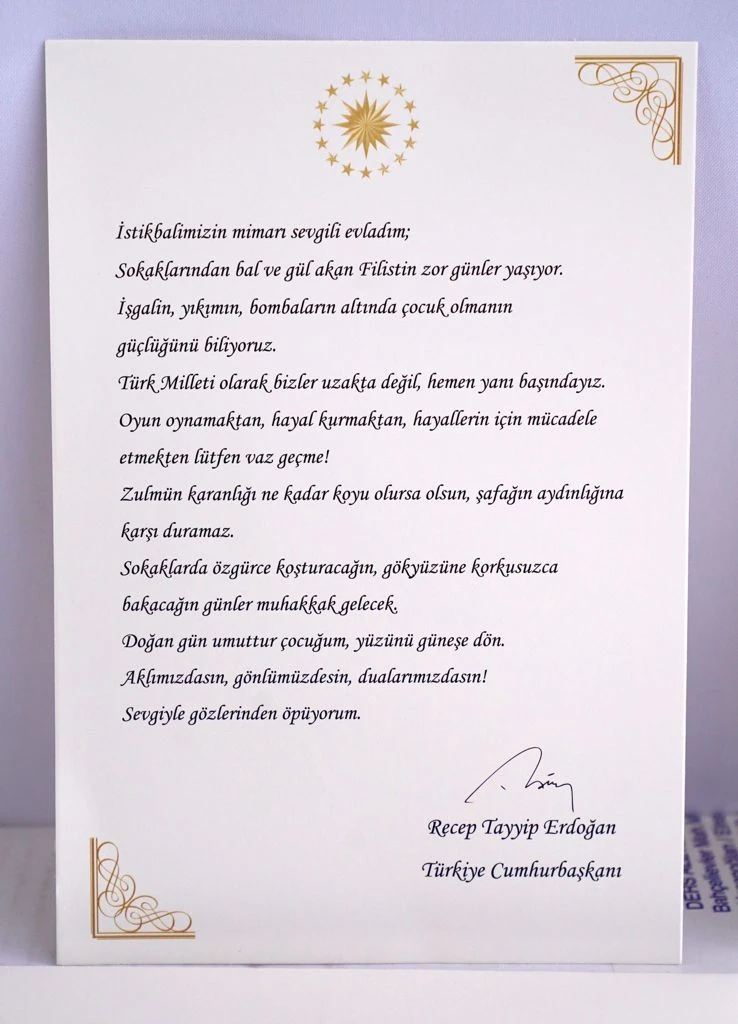 İstikbalimizin mimarı sevgili evladım;
Sokaklarından bal ve gül akan Filistin zor günler yaşıyor.
İşgalin, yıkımın, bombaların altında çocuk olmanın
güçlüğünü biliyoruz.
Türk Milleti olarak bizler uzakta değil, hemen yanı başındayız.
Oyun oynamaktan, hayal kurmaktan, hayallerin için mücadele
etmekten lütfen vaz geçme!
Zulmün karanlığı ne kadar koyu olursa olsun, şafağın aydınlığına
karşı duramaz.
Sokaklarda özgürce koşturacağın, gökyüzüne korkusuzca
bakacağın günler muhakkak gelecek.
Doğan gün umuttur çocuğum, yüzünü güneşe dön.
Aklımızdasın, gönlümüzdesin, dualarımızdasın!
Sevgiyle gözlerinden öpüyorum.
Recep Tayyip Erdoğan
Türkiye Cumhurbaşkanı
DERS
Bahçelievler Mah.